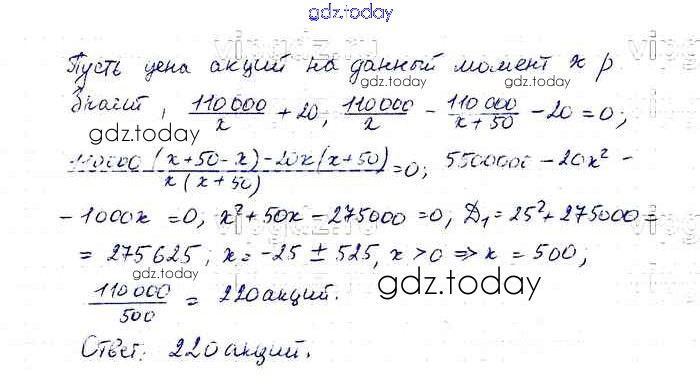 gdz.today
Пусть цена акций на данный момент x р
gdz.today
Значит, 110000/x + 20, 110000/x - 110000/(x + 50) - 20 = 0;
gdz.today
110000(x+50-x)-20x(x+50)/x(x+50) = 0; 5500000 - 20x² -
- 1000x = 0, x² + 50x - 275000 = 0, D₁ = 25² + 275000 =
= 275625; x = -25 ± 525, x > 0 => x = 500,
gdz.today
110000/500 = 220 акций.
gdz.today
Ответ: 220 акций.
gdz.today